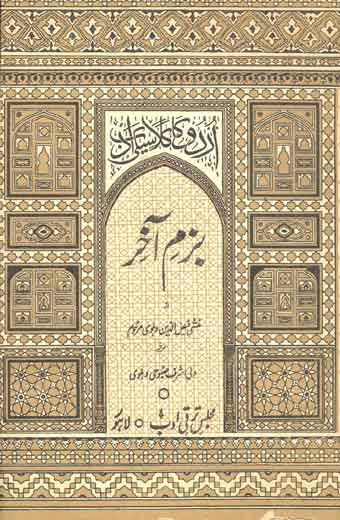 اردو کا کلاسیکی ادب
بزمِ آخر
از
منشی فیض الدین دہلوی مرحوم
مرتبہ
ولی اشرف صبوحی دہلوی
مجلس ترقی ادب ○ لاہور